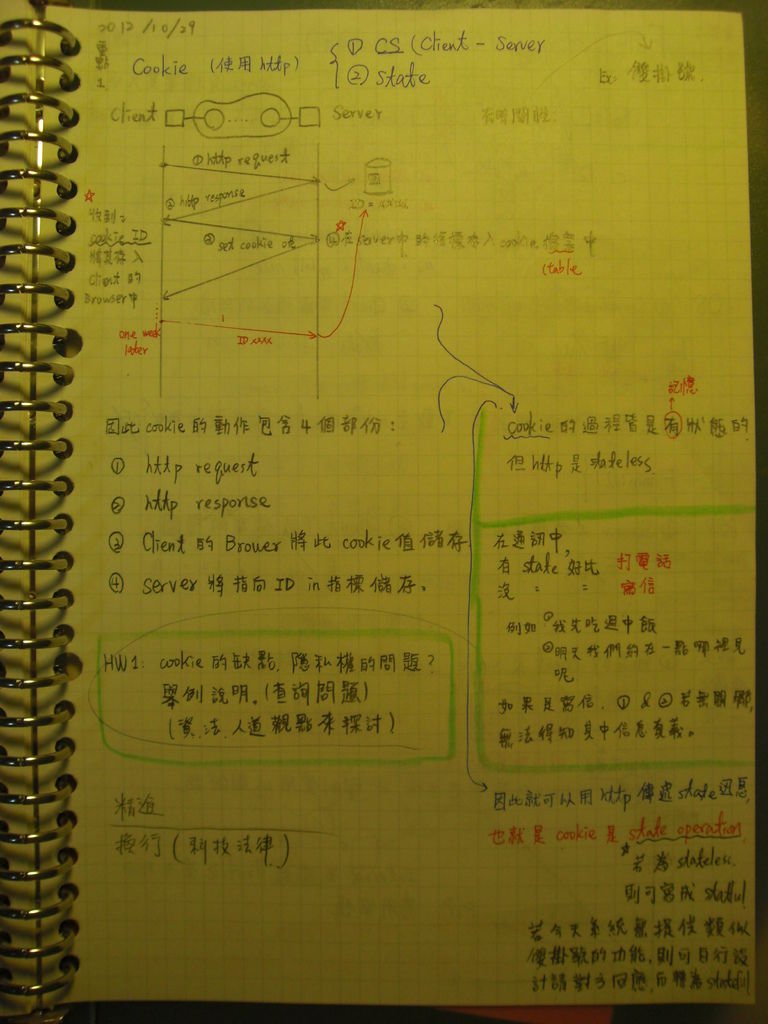 2012/10/29
重點
1.
Cookie (使用http)
① CS (Client - Server
② state
Ex: 雙掛號.
有時間性:
Client
Server
① http request
② http response
ID =
☆
收到
cookie ID
將其存入
Client 的
Browser中
③ set cookie
☆
④ 在server中 的指標存入 cookie 檔案 中
(table
one week
later
ID xxxx
因此 cookie 的動作包含 4 個部份:
① http request
② http response
③ Client 的 Brower 將此 cookie值儲存
④ server 將指向 ID in 指標儲存。
記憶
cookie 的過程皆是有狀態的
但 http 是 stateless.
在通訊中,
有 state 好比 打電話
沒 〃 〃 寫信
例如 ①我先吃過中飯
②明天我們約在一點哪裡見
呢
如果是寫信, ① & ② 若無關聯,
無法得知其中信息意義。
HW1: cookie 的缺點, 隱私權的問題?
舉例說明。(查詢問題)
(資、法、人道觀點來探討)
精進
換行 (科技法律)
因此就可以用 http 傳遞 state 訊息,
也就是 cookie 是 state operation.
☆若為 stateless.
則可寫成 statful
若今天系統無提供類似
雙掛號的功能, 則可自行設
計請對方回應, 而轉為 stateful